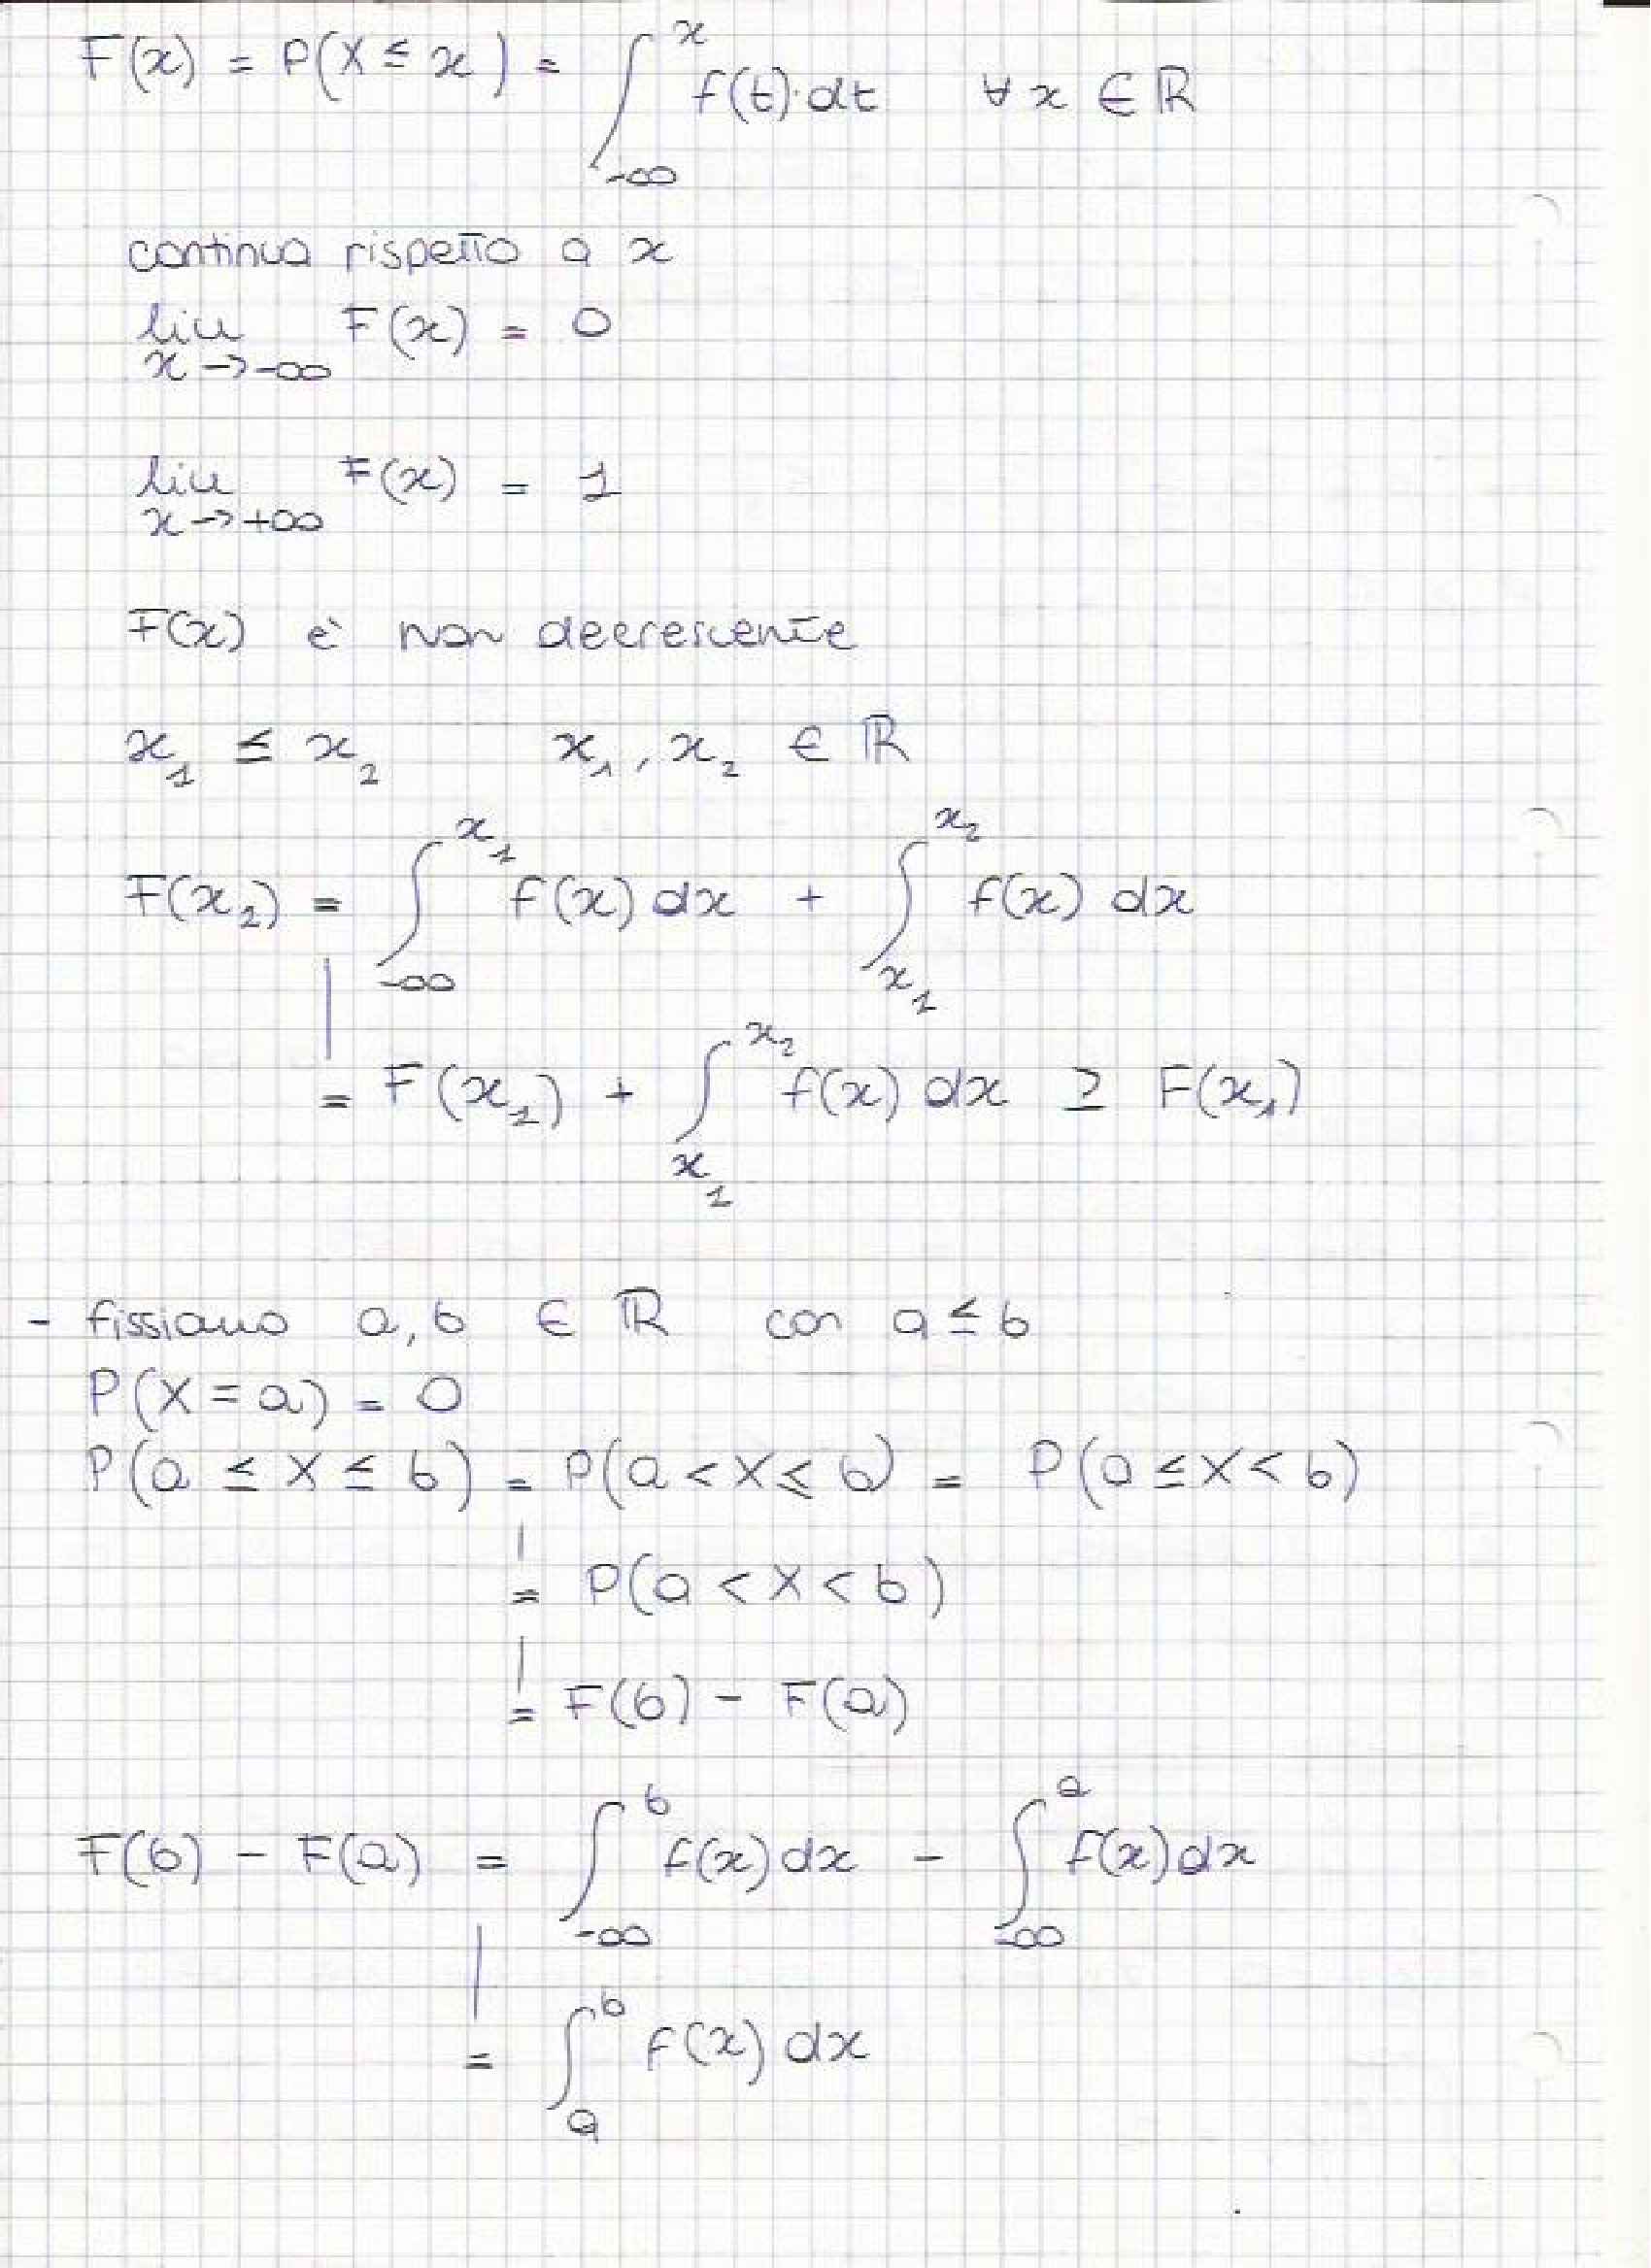 F(x) = P(X ≤ x) = ∫_{-∞}^{x} f(t)·dt ∀ x ∈ ℝ
continua rispetto a x
lim_{x→-∞} F(x) = 0
lim_{x→+∞} F(x) = 1
F(x) è non decrescente
x₁ ≤ x₂ x₁, x₂ ∈ ℝ
F(x₂) = ∫_{-∞}^{x₁} f(x) dx + ∫_{x₁}^{x₂} f(x) dx
= F(x₁) + ∫_{x₁}^{x₂} f(x) dx ≥ F(x₁)
- fissiamo a, b ∈ ℝ con a ≤ b
P(X = a) = 0
P(a ≤ X ≤ b) = P(a < X ≤ b) = P(a ≤ X < b)
= P(a < X < b)
= F(b) - F(a)
F(b) - F(a) = ∫_{-∞}^{b} f(x) dx - ∫_{-∞}^{a} f(x) dx
= ∫_{a}^{b} f(x) dx